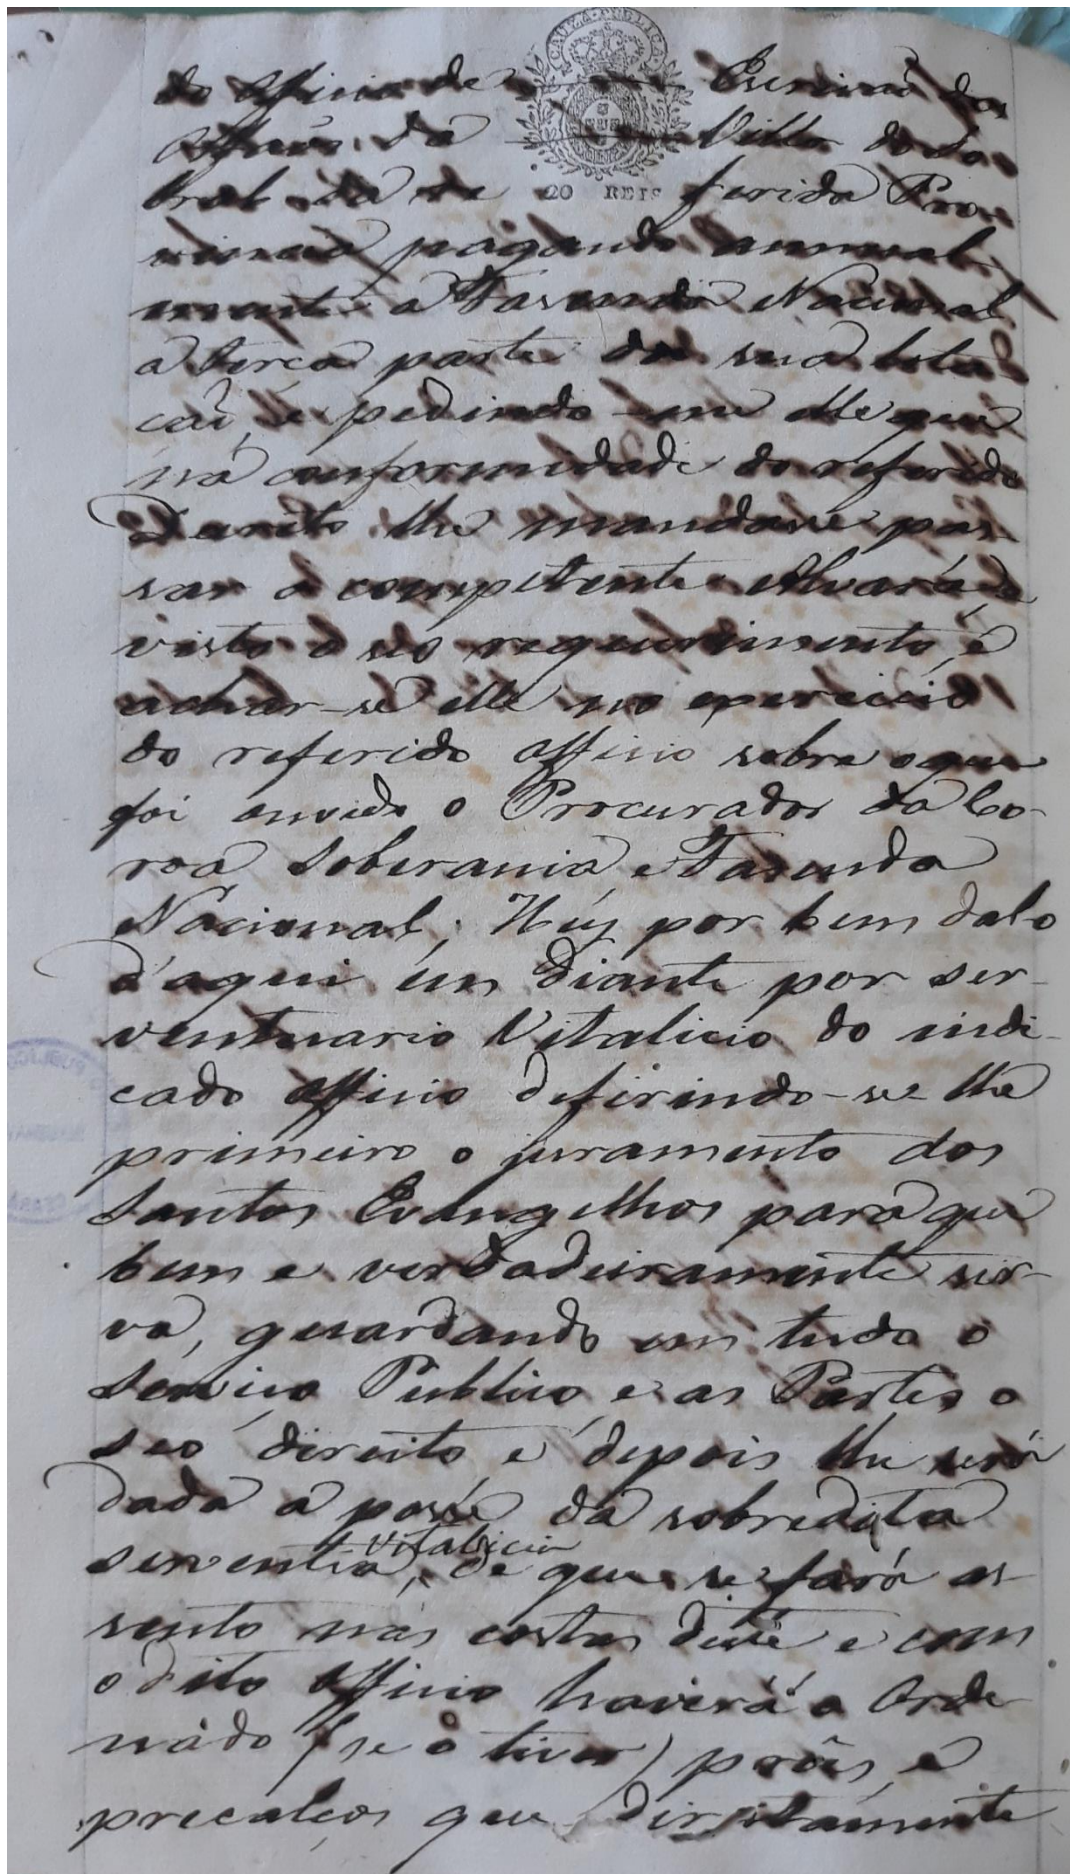 CAUZA PUBLICA
do Officio de Escrivaõ dos
Orfaõs da Villa do So-
bral da re 20 REIS ferida Pro-
vincia pagando annual-
mente a Fasenda Nacional
a terça parte da sua lota-
caõ, e pedindo-me elle que
na conformidade do referido
Decreto lhe mandasse pas-
sar o competente Alvará, e
visto o seo requerimento, e
achar-se elle no exercicio
do referido Officio sobre o que
foi ouvido o Procurador da Co-
roa Soberania e Fasenda
Nacional; Hey por bem dalo
d'aqui em diante por ser-
ventuario Vitalicio do indi-
cado Officio defirindo-se lhe
primeiro o juramento dos
Santos Evangelhos para que
bem e verdadeiramente sir-
va, guardando em tudo o
Serviço Publico e as Partes o
seo direito e depois lhe será
dada a posse da sobredita
serventia vitalicia, de que se fará as-
sento nas costas deste e com
o dito Officio haverá o Orde-
nado (se o tiver) próes, e
precalços que direitamente